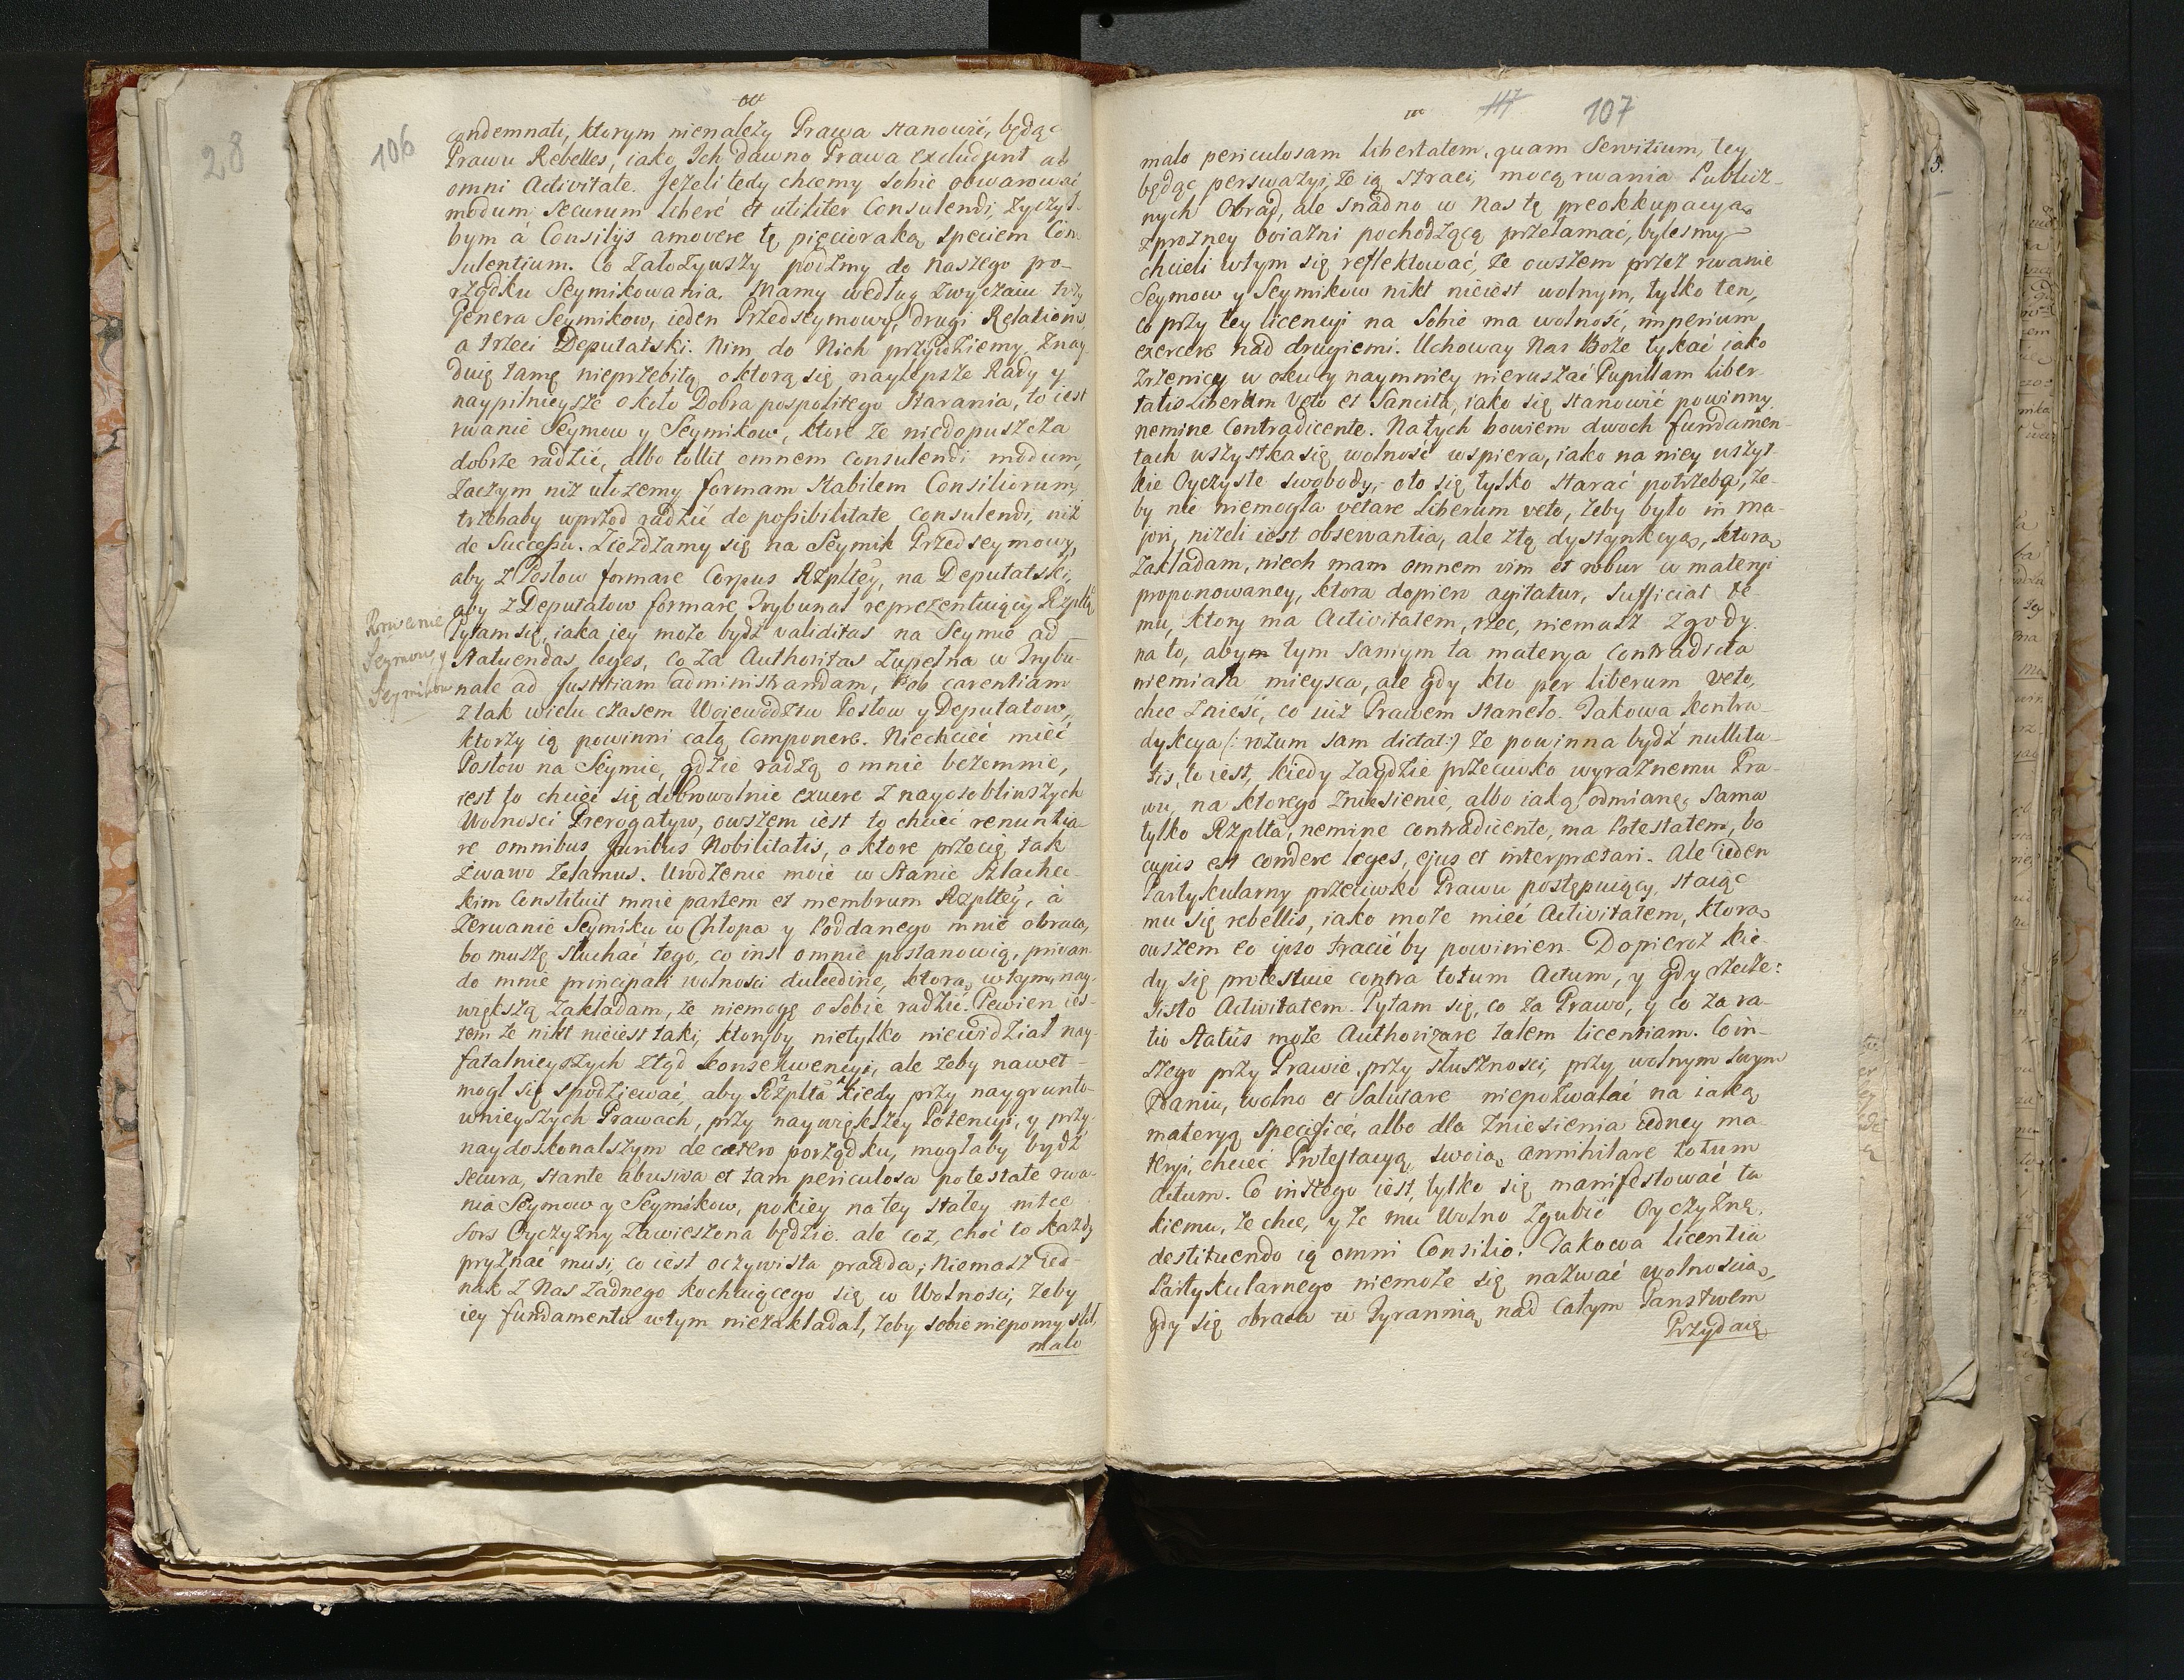 28
106
condemnati, ktorym nienależy Prawa stanowić, będąc
Prawu Rebelles, iako Ich dawno Prawa excludunt ab
omni Activitate. Jeżeli tedy chcemy sobie obwarować
modum securum liberé et utiliter Consulendi, życzył
bym á Consilijs amovere tę pięcioraką speciem Con
sulentium. Co założywszy podźmy do naszego po-
rządku Seymikowania. Mamy według zwyczaiu trzy
Genera Seymikow, ieden Przedseymowy, drugi Relationis
a trzeci Deputatski. Nim do Nich przydziemy, znay
duię tamę nieprzebitą o ktorą się naylepsze Rady y
naypilnieysze około Dobra pospolitego starania, to iest
rwanie Seymow y Seymikow, ktore że niedopuszcza
dobrze radzić, albo tollit omnem consulendi modum,
zaczym niż ułożemy formam stabilem Consiliorum,
trzebaby wprzod radzić de possibilitate consulendi, niż
de Successu. Zieżdżamy się na Seymik Przedseymowy,
aby z Posłow formare Corpus Rzpltey, na Deputatski,
aby z Deputatow formare Trybunał reprezentuiący Rzpltę
Rwanie
Seymow y
Seymikow
Pytam się, iaka iey może bydź validitas na Seymie ad
statuendas leges, co za Authoritas zupełna w Trybu-
nale ad Justitiam administrandam, ob carentiam
z tak wielu czasem Woiewodztw Posłow y Deputatow,
ktorzy ią powinni całą componere. Niechcieć mieć
Posłow na Seymie, gdzie radzą o mnie bezemnie,
iest to chcieć się dobrowolnie exuere z nayosobliwszych
Wolności Prerogatyw, owszem iest to chcieć renuntia-
re omnibus Juribus Nobilitatis, o ktore przecię tak
żwawo zelamus. Urodzenie moie w Stanie Szlachec-
kim Constituit mnie partem et membrum Rzpltey, à
zerwanie Seymiku w Chłopa y Poddanego mnie obraca,
bo muszę słuchać tego, co insi o mnie postanowią, privan
do mnie principali wolności dulcedine, ktorą w tym nay-
większą zakładam, że niemogę o sobie radzić. Pewien ies-
tem że nikt nieiest taki, ktoryby nietylko niewidział nay-
fatalnieyszych ztąd konsekwencyi, ale żeby nawet
mogł się spodziewać, aby Rzplta kiedy przy naygrunto-
wnieyszych Prawach, przy naywiększey Potencyi, y przy
naydoskonalszym de cætero porządku, mogłaby bydź
secura, stante abusiva et tam periculosa potestate rwa-
nia Seymow y Seymikow, pokiey na tey stałey nitce
sors Oyczyzny zawieszona będzie. ale coż, choć to każdy
pryznać musi, co iest oczywista prawda; Niemasz ied-
nak z Nas żadnego kochaiącego się w Wolności, żeby
iey fundamentu w tym niezakładał, żeby sobie niepomyslił,
malo
117
107
malo periculosam libertatem, quam Servitium, tey
będąc perswazyi, że ią straci, mocą rwania Publicz-
nych Obrad, ale snadno w nas tę preokkupacyą
zprozney boiaźni pochodzącą przełamać, bylesmy
chcieli wtym się reflektować, że owszem przez rwanie
Seymow y Seymikow nikt nieiest wolnym, tylko ten,
co przy tey licencyi na sobie ma wolność, imperium
exercere nad drugiemi. Uchoway Nas Boże tykać iako
źrzenicy w oku y naymniey nieruszać Pupillam liber
tatis Liberum Veto et Sancita, iako się stanowić powinny
nemine Contradicente. Na tych bowiem dwoch fundamen-
tach wszystka się wolność wspiera, iako na niey wszyt-
kie Oyczyste swobody, oto się tylko starać potrzeba, że-
by nie niemogła vetare liberum veto, żeby było in ma-
jori, niżeli iest observantia, ale ztą dystynkcyą, ktorą
zakładam, niech mam omnem vim et robur w materyi
proponowaney, ktora dopiero agitatur, Sufficiat te
mu, ktory ma Activitatem, rzec, niemasz zgody
na to, aby tym samym ta materya contradicta
niemiała mieysca, ale gdy kto per liberum veto,
chce znieść, co iuż Prawem staneło. Takowa kontra-
dykcya (: rozum sam dictat :) że powinna bydź nullita-
tis, to iest, kiedy zaydzie przeciwko wyraźnemu Pra-
wu, na ktorego zniesienie, albo iaką odmianę, sama
tylko Rzplta, nemine contradicente, ma Potestatem, bo
cujus est condere leges, ejus et interpretari. Ale ieden
Partykularny przeciwko Prawu postępuiący, staiąc
mu się rebellis, iako może mieć Activitatem, ktorą
owszem eo ipso tracić by powinien. Dopieroż kie-
dy się protestuie contra totum Actum, y gdy rzecze:
Sisto Activitatem. Pytam się, co za Prawo, y co za ra-
tio Statûs może Authorizare talem licentiam. Co in-
szego przy Prawie, przy słuszności, przy wolnym swym
zdaniu, wolno et salutare niepozwalać na iaką
materyą specificé, albo dla zniesienia iedney ma
teryi, chcieć Protestacyą swoią annihilare totum
Actum. Co inszego iest, tylko się manifestować ta
kiemu, że chce, y że mu Wolno zgubić Oyczyznę,
destituendo ią omni Consilio. Takowa licentia
Partykularnego niemoże się nazwać wolnością,
gdy się obraca w Tyrannią nad całym Panstwem
Przydaię